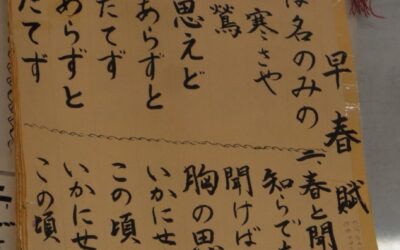 早春賦
は名のみの
寒さや
鶯
思えど
あらずと
たてず
あらずと
たてず
二春と聞
知らで
聞けば
胸の思
いかにせ
この頃
いかにせ
この頃